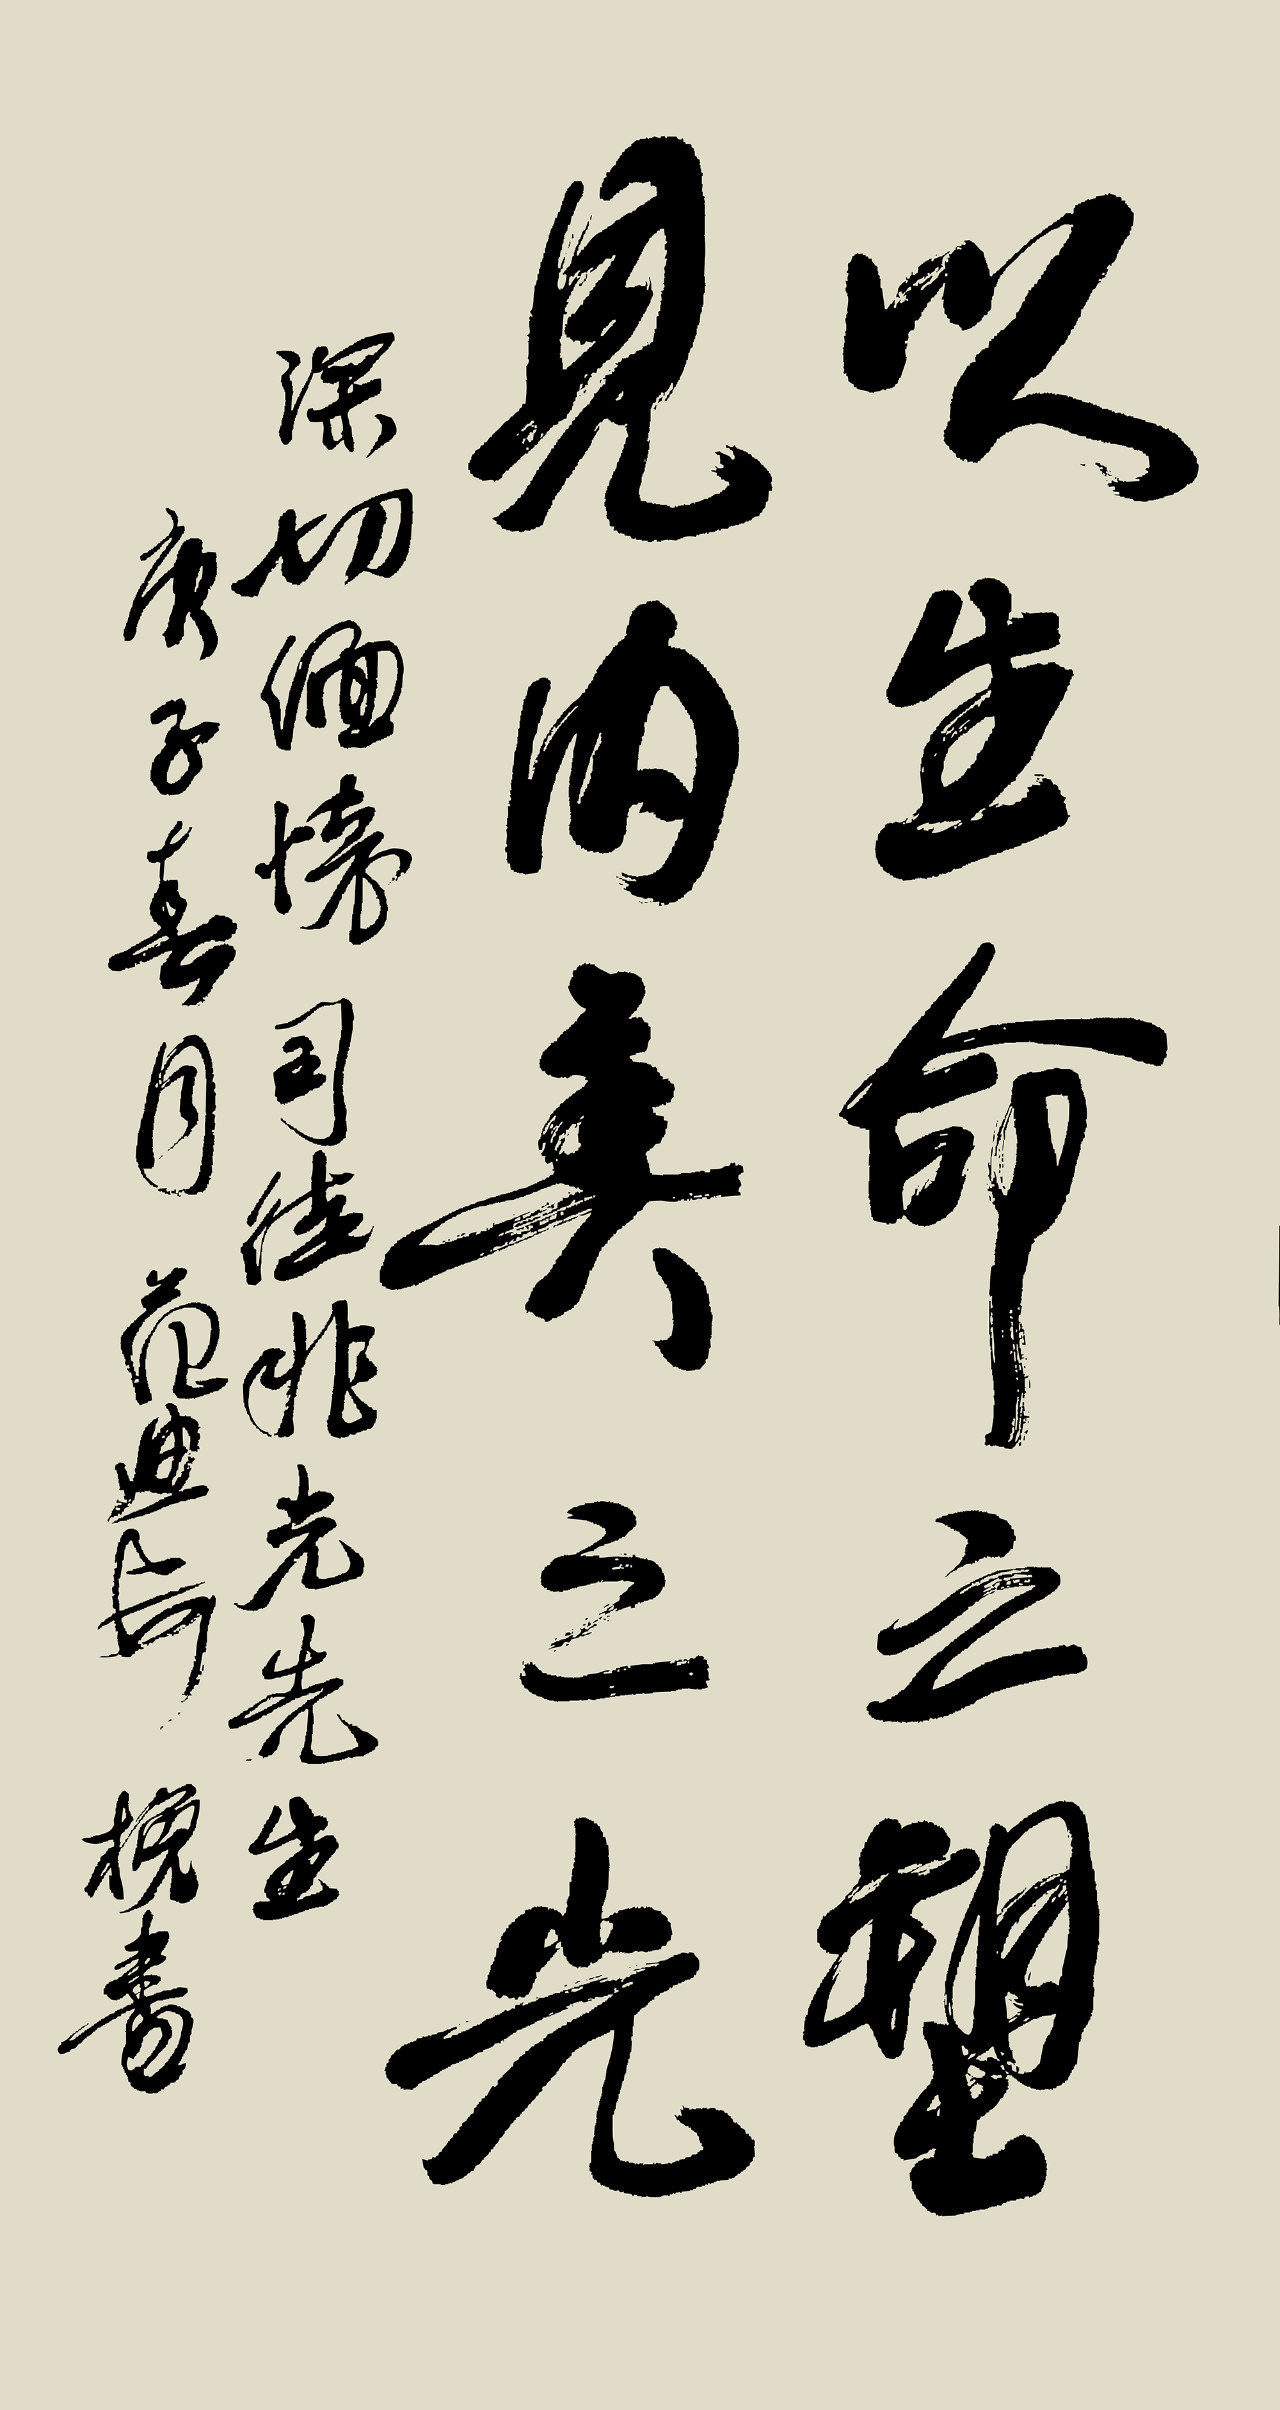 以生命之塑
見内美之光
深切緬懷司徒兆光先生
庚子春月范迪安挽書